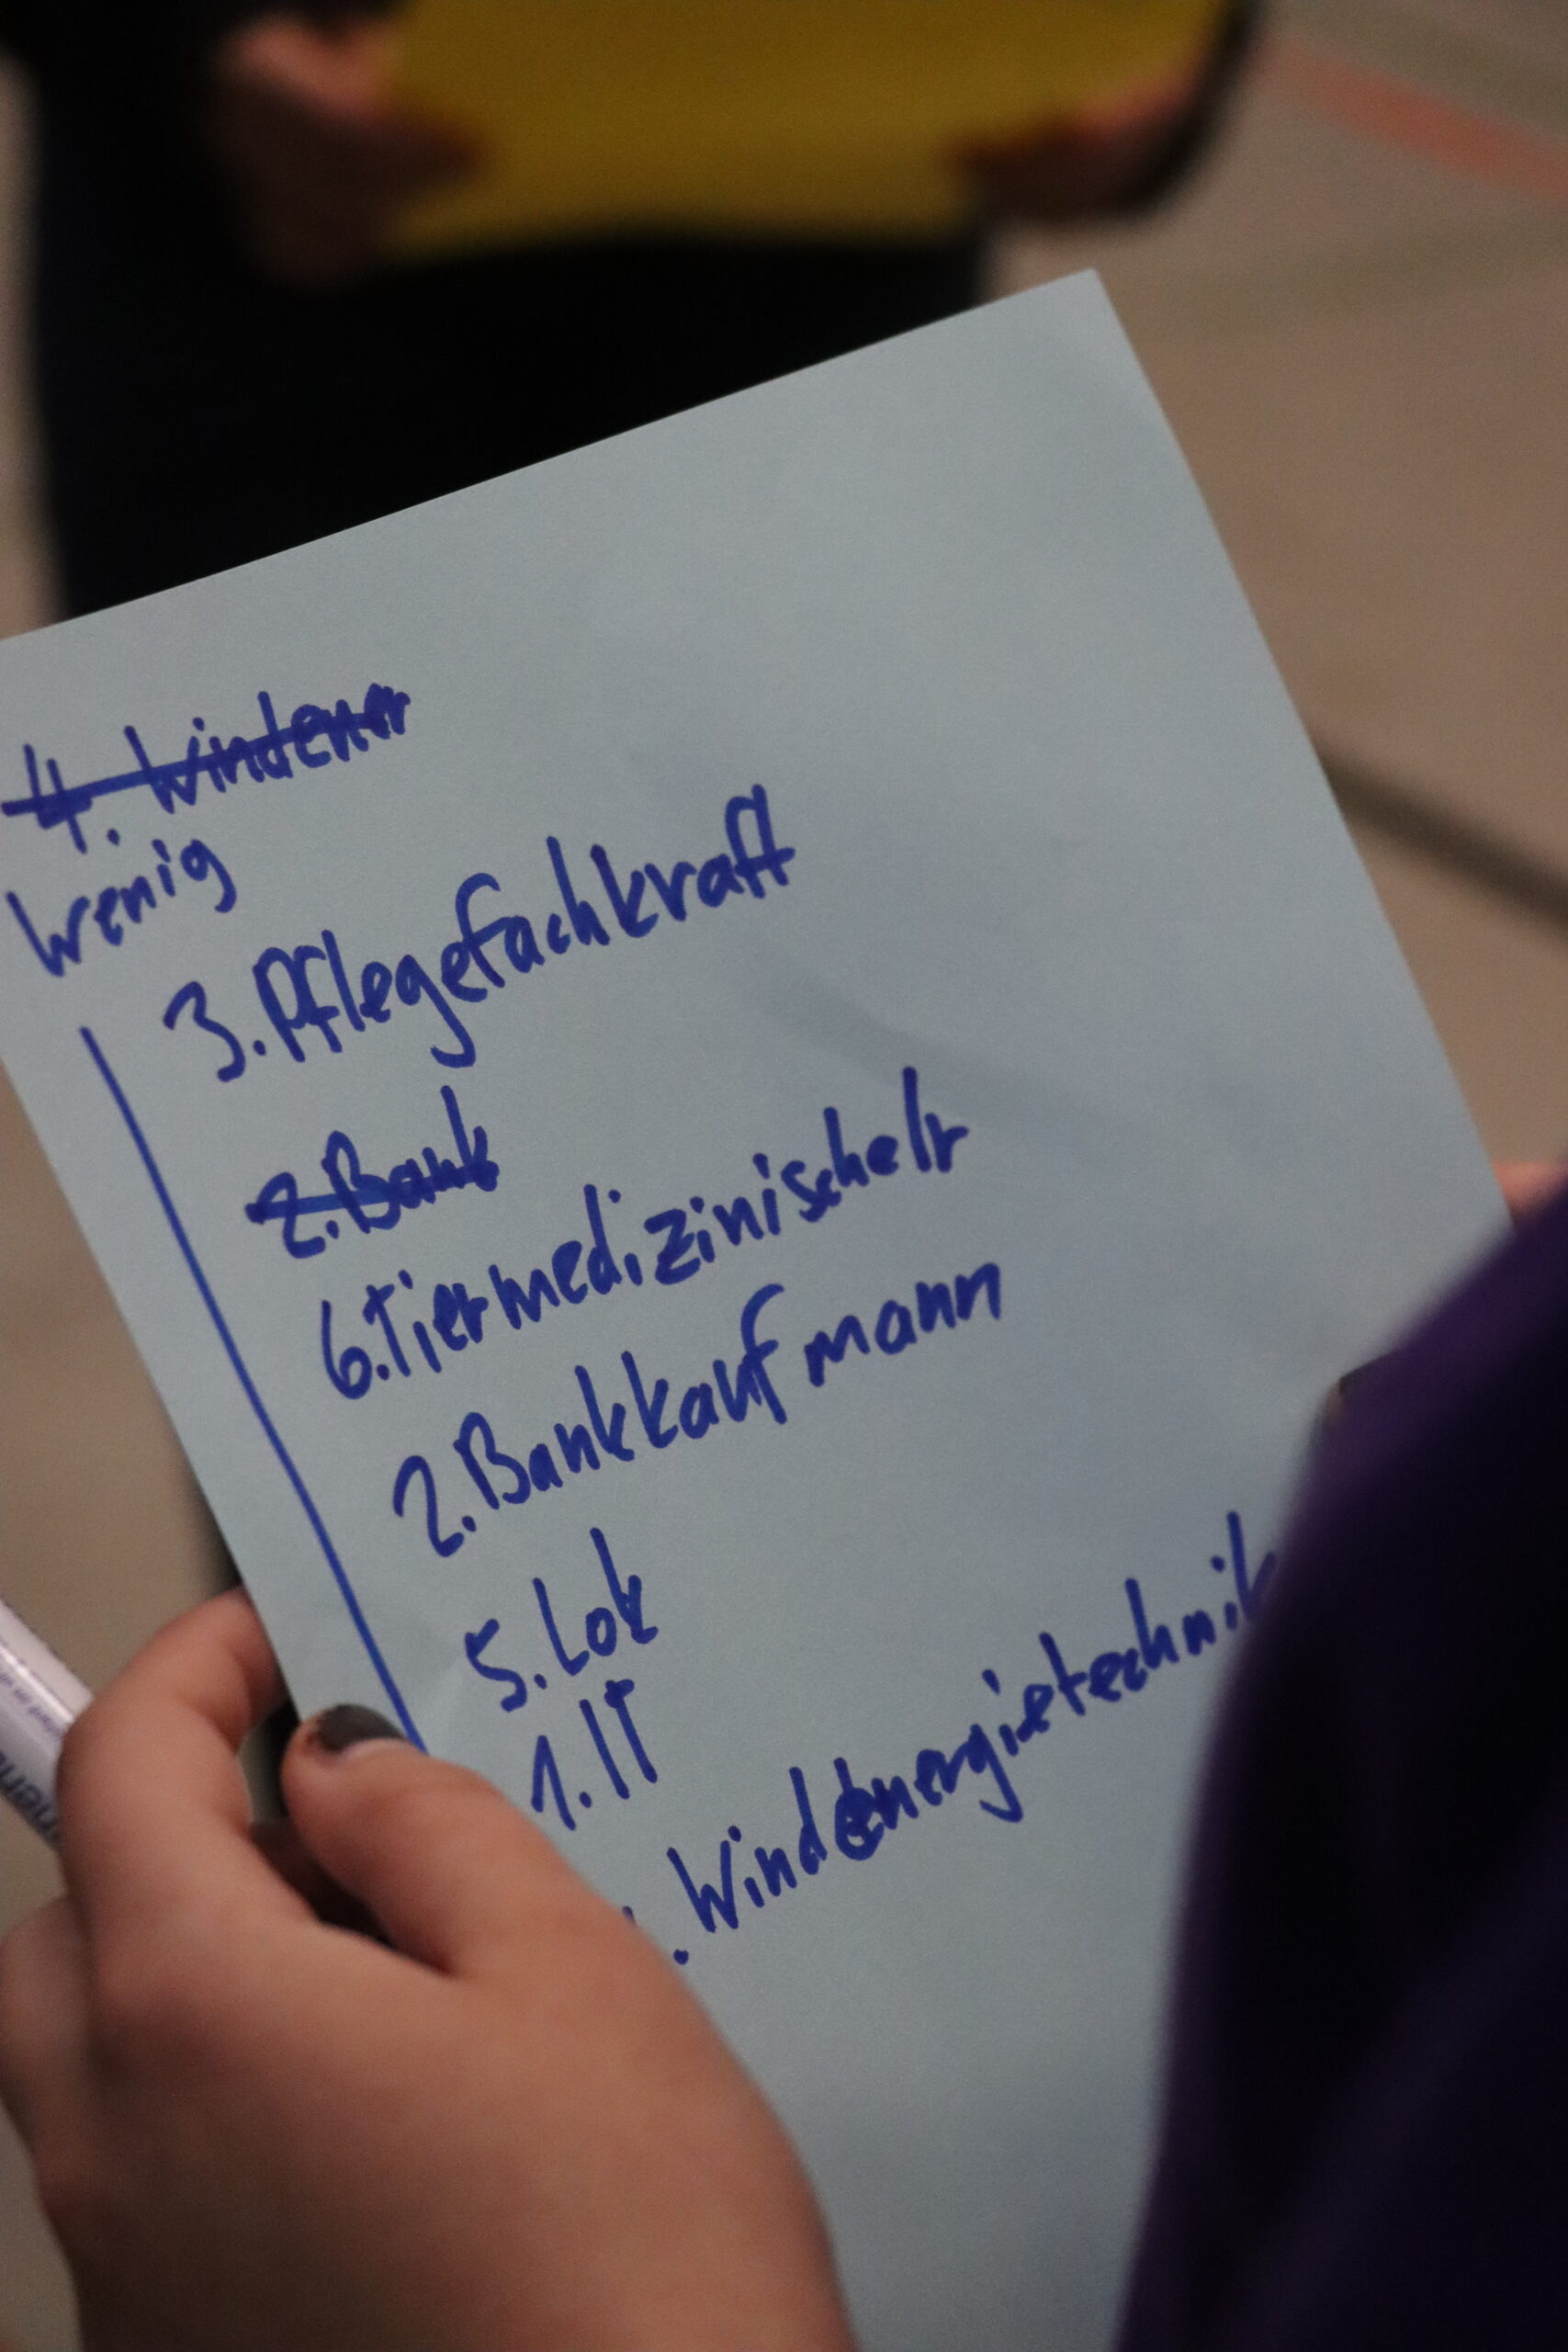 4. Windener
Wenig
3. Pflegefachkraft
2. Bank
6. Tiermedizinischelr
2. Bankkaufmann
5. Lok
1. IT
. Windenergietechnik